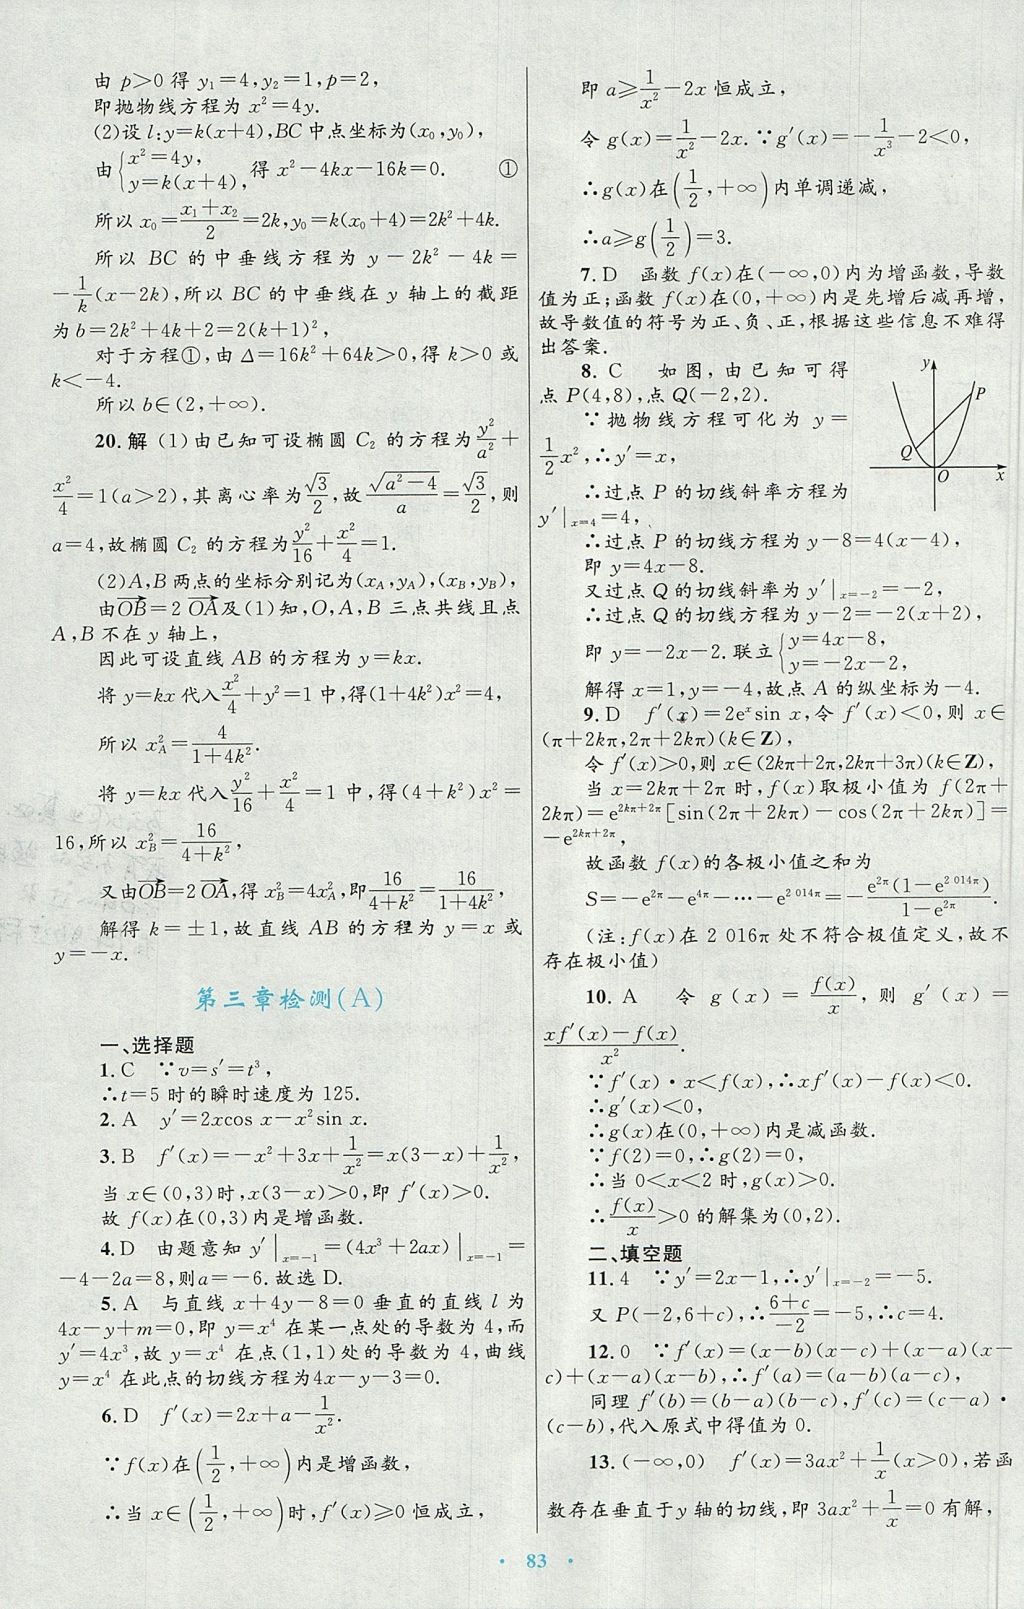 由 p>0 得 y₁=4,y₂=1,p=2,
即抛物线方程为 x²=4y.
(2)设 l:y=k(x+4),BC 中点坐标为(x₀,y₀),
由{x²=4y, y=k(x+4),得 x²-4kx-16k=0. ①
所以 x₀=(x₁+x₂)/2=2k,y₀=k(x₀+4)=2k²+4k.
所以 BC 的中垂线方程为 y-2k²-4k=
-1/k(x-2k),所以 BC 的中垂线在 y 轴上的截距
为 b=2k²+4k+2=2(k+1)²,
对于方程①,由 Δ=16k²+64k>0,得 k>0 或
k<-4.
所以 b∈(2,+∞).
20.解 (1)由已知可设椭圆 C₂ 的方程为 y²/a²+
x²/4=1(a>2),其离心率为 √3/2,故 √(a²-4)/a=√3/2,则
a=4,故椭圆 C₂ 的方程为 y²/16+x²/4=1.
(2)A,B 两点的坐标分别记为(x_A,y_A),(x_B,y_B),
由 →OB=2 →OA及(1)知,O,A,B 三点共线且点
A,B 不在 y 轴上,
因此可设直线 AB 的方程为 y=kx.
将 y=kx 代入 x²/4+y²=1 中,得(1+4k²)x²=4,
所以 x_A²=4/(1+4k²).
将 y=kx 代入 y²/16+x²/4=1 中,得(4+k²)x²=
16,所以 x_B²=16/(4+k²),
又由→OB=2 →OA,得 x_B²=4x_A²,即 16/(4+k²)=16/(1+4k²),
解得 k=±1,故直线 AB 的方程为 y=x 或
y=-x.
第三章检测(A)
一、选择题
1.C ∵v=s′=t³,
∴t=5 时的瞬时速度为 125.
2.A y′=2xcos x-x²sin x.
3.B f′(x)=-x²+3x+1/x²=x(3-x)+1/x²,
当 x∈(0,3)时,x(3-x)>0,即 f′(x)>0.
故 f(x)在(0,3)内是增函数.
4.D 由题意知 y′|x=-1=(4x³+2ax)|x=-1=
-4-2a=8,则a=-6.故选 D.
5.A 与直线 x+4y-8=0 垂直的直线 l 为
4x-y+m=0,即 y=x⁴ 在某一点处的导数为 4,而
y′=4x³,故 y=x⁴ 在点(1,1)处的导数为 4,曲线
y=x⁴ 在此点的切线方程为4x-y-3=0.
6.D f′(x)=2x+a-1/x².
∵f(x)在(1/2,+∞)内是增函数,
∴当 x∈(1/2,+∞)时,f′(x)≥0 恒成立,
即 a≥1/x²-2x 恒成立,
令 g(x)=1/x²-2x.∵g′(x)=-1/x³-2<0,
∴g(x)在(1/2,+∞)内单调递减,
∴a≥g(1/2)=3.
7.D 函数 f(x)在(-∞,0)内为增函数,导数
值为正;函数 f(x)在(0,+∞)内是先增后减再增,
故导数值的符号为正、负、正,根据这些信息不难得
出答案.
8.C 如图,由已知可得
点 P(4,8),点 Q(-2,2).
∵抛物线方程可化为 y=
1/2x²,∴y′=x,
∴过点 P 的切线斜率方程为
y′|x=4=4,
y
P
Q
O
x
∴过点 P 的切线方程为 y-8=4(x-4),
即 y=4x-8.
又过点 Q 的切线斜率为 y′|x=-2=-2,
∴过点 Q 的切线方程为 y-2=-2(x+2),
即 y=-2x-2.联立{y=4x-8, y=-2x-2,
解得 x=1,y=-4,故点 A 的纵坐标为-4.
9.D f′(x)=2eˣsin x,令 f′(x)<0,则 x∈
(π+2kπ,2π+2kπ)(k∈Z),
令 f′(x)>0,则 x∈(2kπ+2π,2kπ+3π)(k∈Z),
当 x=2kπ+2π 时,f(x)取极小值为 f(2π+
2kπ)=e^(2kπ+2π)[sin(2π+2kπ)-cos(2π+2kπ)]=
-e^(2kπ+2π),
故函数 f(x)的各极小值之和为
S=-e^(2π)-e^(4π)-…-e^(2 014π)=-e^(2π)(1-e^(2 014π))/(1-e^(2π)).
(注:f(x)在 2 016π 处不符合极值定义,故不
存在极小值)
10.A 令 g(x)=f(x)/x,则 g′(x)=
(xf′(x)-f(x))/x².
∵f′(x)·x<f(x),∴xf′(x)-f(x)<0.
∴g′(x)<0,
∴g(x)在(0,+∞)内是减函数.
∵f(2)=0,∴g(2)=0,
∴当 0<x<2 时,g(x)>0.
∴f(x)/x>0 的解集为(0,2).
二、填空题
11.4 ∵y′=2x-1,∴y′|x=-2=-5.
又 P(-2,6+c),∴(6+c)/-2=-5,∴c=4.
12.0 ∵f′(x)=(x-b)(x-c)+(x-a)(x-
c)+(x-a)(x-b),∴f′(a)=(a-b)(a-c),
同理 f′(b)=(b-a)(b-c),f′(c)=(c-a)·
(c-b),代入原式中得值为 0.
13.(-∞,0) f′(x)=3ax²+1/x(x>0),若函
数存在垂直于y 轴的切线,即 3ax²+1/x=0 有解,
· 83 ·